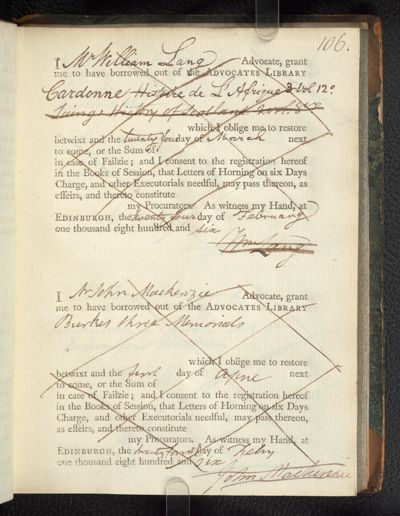 106.
I Mr William Lang Advocate, grant
me to have borrowed out of the ADVOCATES LIBRARY
Cardonne Histoire de L'Afrique 3 Vol 12º
Laings History of Scotland
which I oblige me to restore
betwixt and the twenty four day of March next
to come, or the Sum of
in case of Failzie; and I consent to the registration hereof
in the Books of Session, that Letters of Horning on six Days
Charge, and other Executorials needful, may pass thereon, as
effeirs, and thereto constitute
my Procurators. As witness my Hand, at
EDINBURGH, the twenty four day of February
one thousand eight hundred and six
Wm Lang
I Mr John Mackenzie Advocate, grant
me to have borrowed out of the ADVOCATES LIBRARY
Burkes three Memorials
which I oblige me to restore
betwixt and the first day of next
to come, or the Sum of
in case of Failzie; and I consent to the registration hereof
in the Books of Session, that Letters of Horning on six Days
Charge, and other Executorials needful, may pass thereon,
as effeirs, and thereto constitute
my Procurators. As witness my Hand, at
EDINBURGH, the twenty fourth day of Febry
one thousand eight hundred and six
John Mackenzie